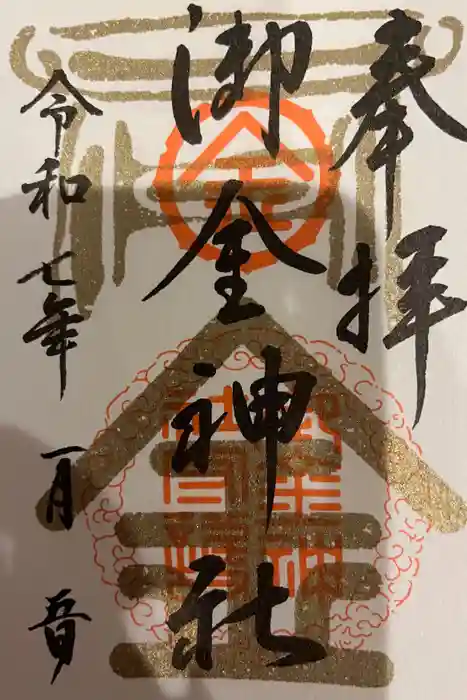 奉拝
御金神社
令和七年一月吉日
金